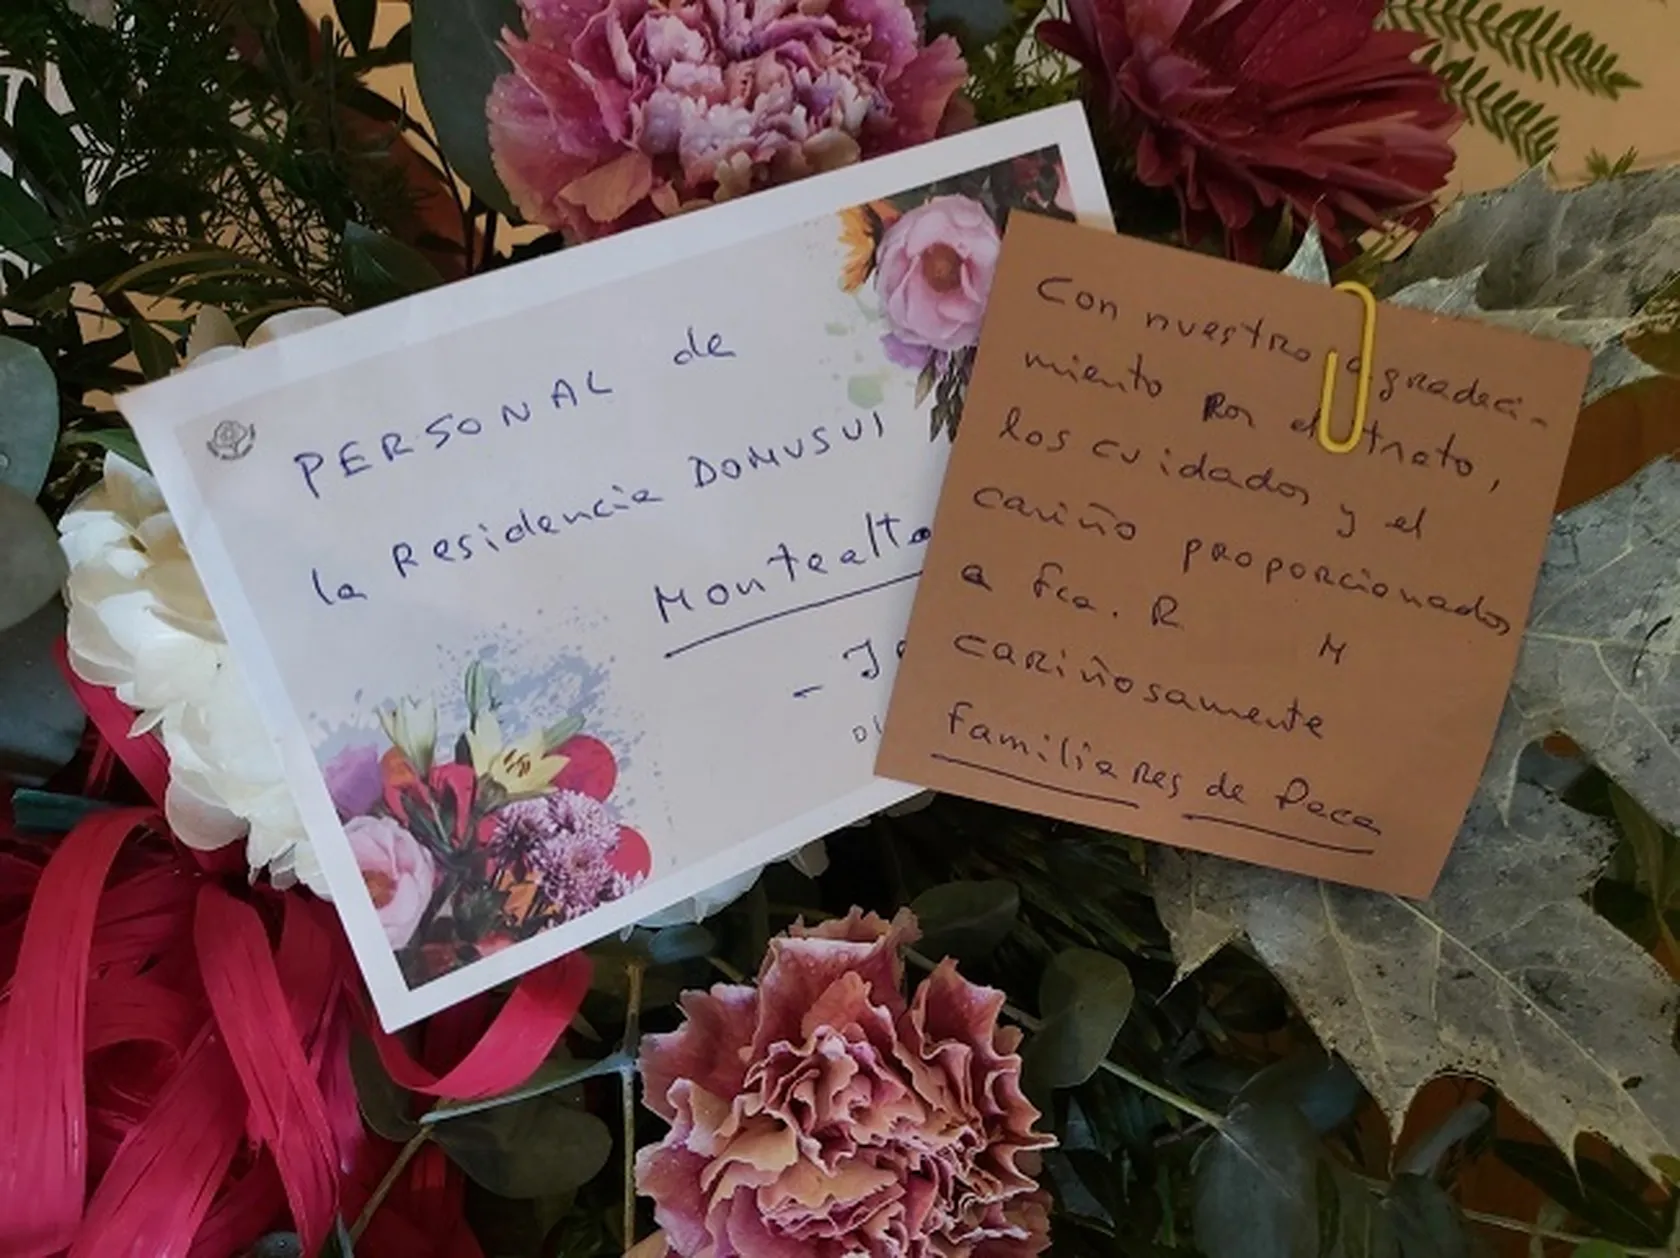 PERSONAL de
la Residencia DOMUSVI
Montealto
Con nuestro agradeci-
miento por el trato,
los cuidados y el
cariño proporcionados
a Fca. R M
cariñosamente
Familiares de Paca